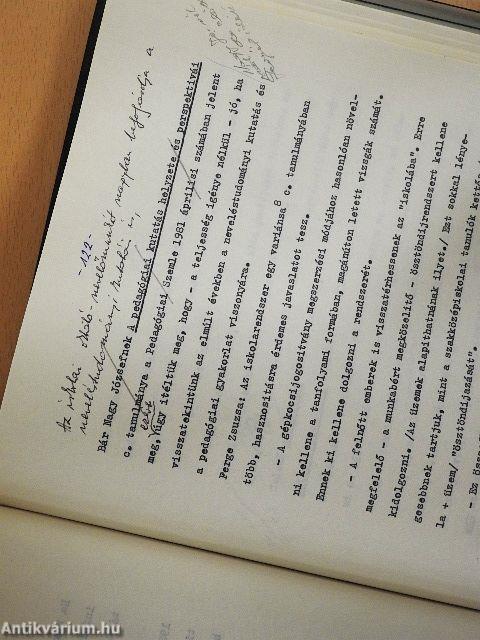 - 122 -
Az iskolai oktató nevelőmunkát nagyban befolyásolja a
neveléstudományi kutatás is,
Bár Nagy Józsefnek A pedagógiai kutatás helyzete és perspektívái
c. tanulmánya a Pedagógiai Szemle 1981 áprilisi számában jelent
meg, úgy itéltük meg, hogy - a teljesség igénye nélkül - jó, ha
visszatekintünk az elmúlt években a neveléstudományi kutatás és
a pedagógiai gyakorlat viszonyára.
Perge Zsuzsa: Az iskolarendszer egy variánsa 8 c. tanulmányában
több, hasznosításra érdemes javaslatot tesz.
- A gépkocsijogosítvány megszerzési módjához hasonlóan növel-
ni kellene a tanfolyami formában, magánúton letett vizsgák számát.
Ennek ki kellene dolgozni a rendszerét.
- A felnőtt emberek is visszatérhessenek az "iskolába". Erre
megfelelő - a munkabért megközelítő - ösztöndíjrendszert kellene
kidolgozni. /Az üzemek alapíthatnának ilyet./ Ezt sokkal lénye-
gesebbnek tartjuk, mint a szakközépiskolai tanulók kettős
la + üzem/ "ösztöndíjazását".
- Ez össz
Antikvárium.hu